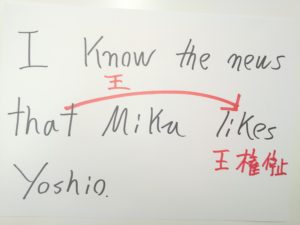 I know the news
王
that Mika likes
王権停止
Yoshio.